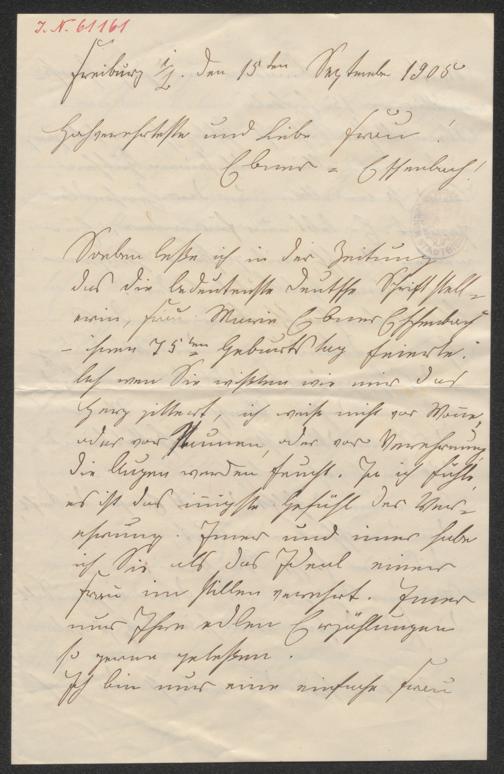 I. N. 61161
Freiburg i/B. den 15ten September 1905
Hochverehrteste und liebe Frau!
Ebner = Eschenbach!
Soeben leße ich in der Zeitung
das die bedeutenste deutsche Schriftstell=
erin, Frau Marie Ebner Eschenbach
– ihren 75ten Geburtstag feierte.
Ach wen Sie wißten wie mir das
Herz zittert, ich weiß nicht vor Wonne,
oder vor Staunen, oder vor Verehrung
die Augen werden feucht. Ja ich fühle,
es ist das innigste Gefühl der Ver=
ehrung. Imer und imer habe
ich Sie als das Ideal einer
Frau im stillen verehrt. Imer
nur Ihre edlen Erzählungen
so gerne geleßen.
Ich bin nur eine einfache Frau